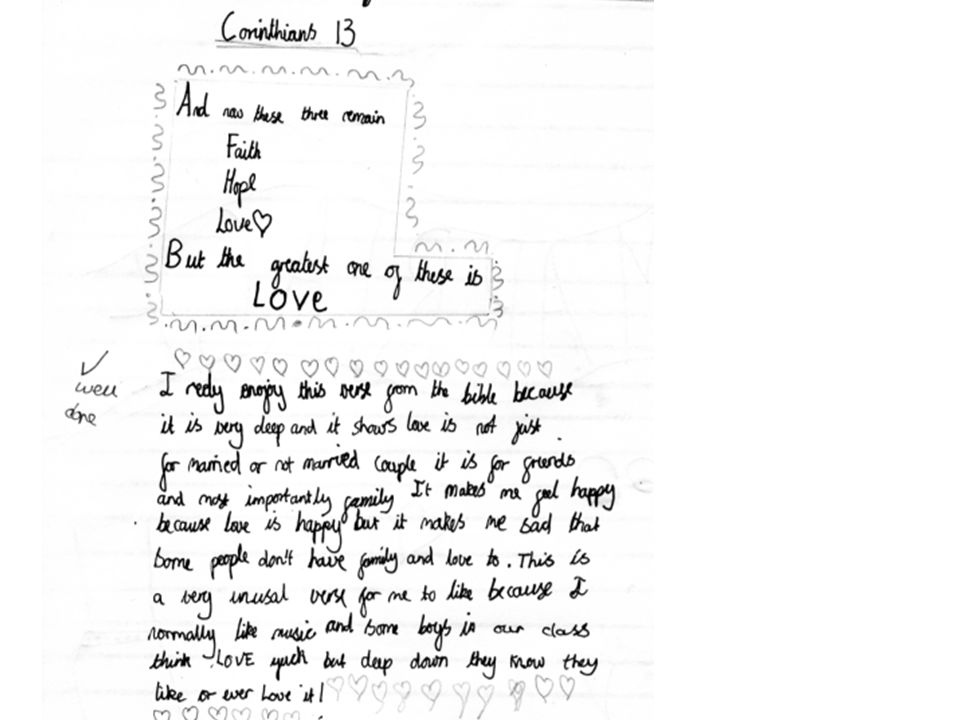 Corinthians 13
And now these three remain
Faith
Hope
Love♡
But the greatest one of these is
LOVE
well
done
I realy enojoy this verse from the bible because
it is very deep and it shows love is not just
for married or not married couple it is for friends
and most importantly family It makes me feel happy
because love is happy but it makes me sad that
some people don't have family and love to. This is
a very unusal verse for me to like because I
normally like music and some boys in our class
think LOVE yuck but deep down they know they
like or ever Love it!